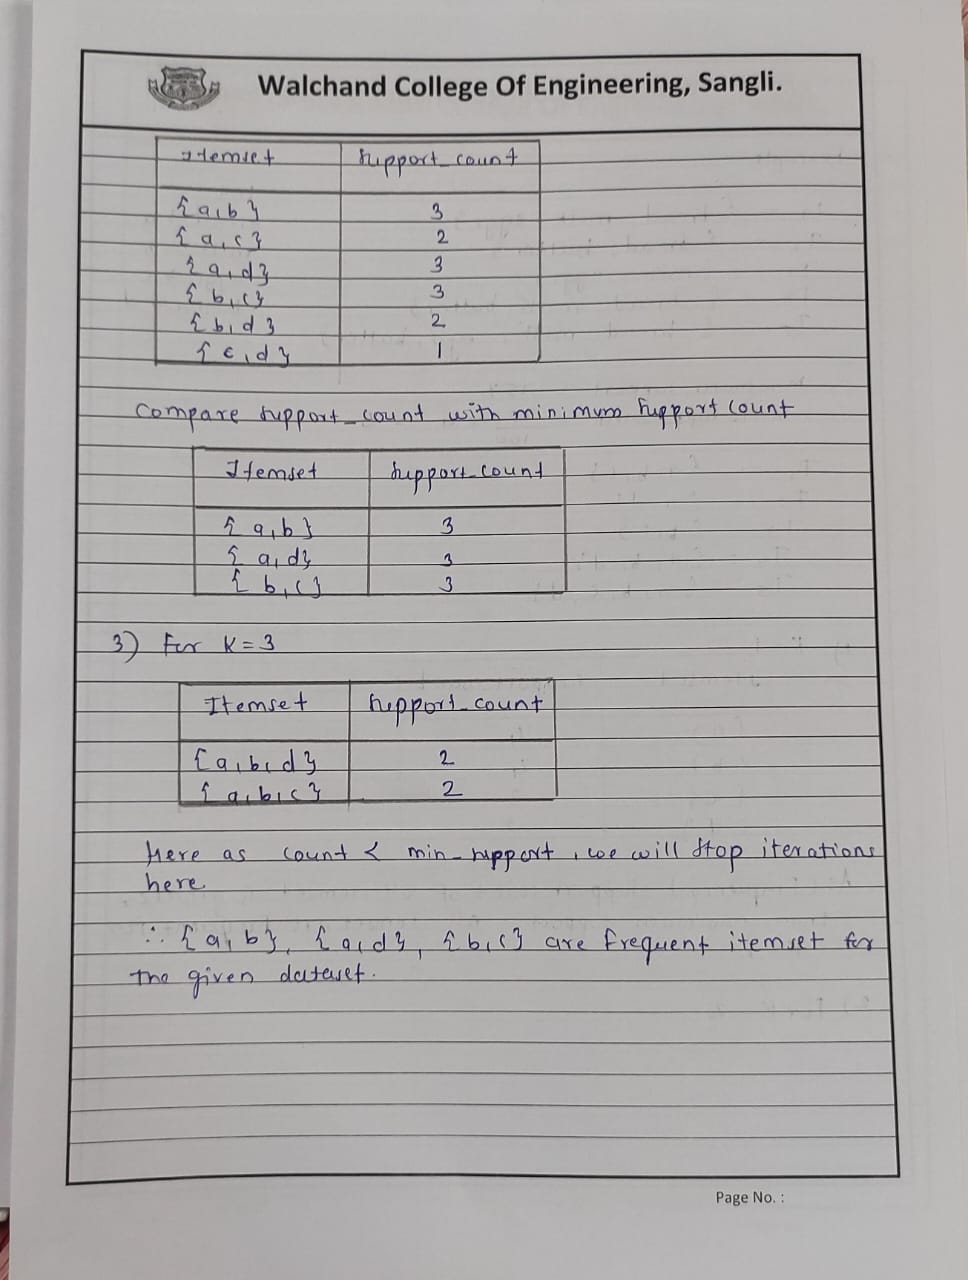 Walchand College Of Engineering, Sangli.
Itemset support_count
{a,b} 3
{a,c} 2
{a,d} 3
{b,c} 3
{b,d} 2
{c,d} 1
Compare support_count with minimum support count
Itemset support_count
{a,b} 3
{a,d} 3
{b,c} 3
3) For K = 3
Itemset support_count
{a,b,d} 2
{a,b,c} 2
Here as count < min_support, we will stop iterations
here.
∴ {a,b}, {a,d}, {b,c} are frequent itemset for
the given dataset.
Page No. :